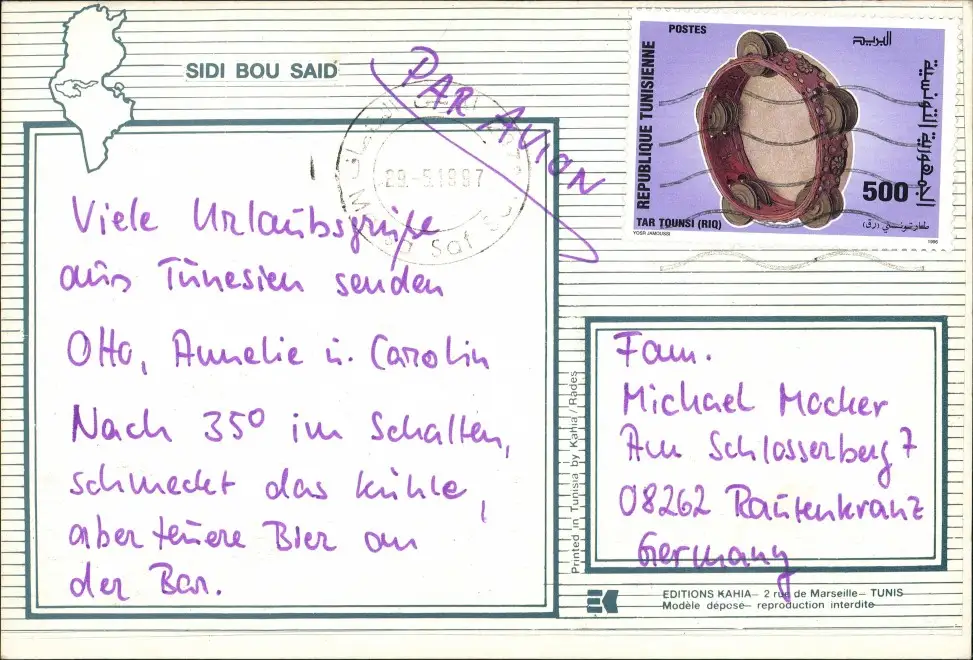 SIDI BOU SAID
PAR AVION
POSTES
البريد
REPUBLIQUE TUNISIENNE
الجمهورية التونسية
500
TAR TOUNSI (RIQ)
YOSR JAMOUSSI
1996
29.-5.1997
Viele Urlaubsgrüße
aus Tunesien senden
Otto, Annelie u. Carolin
Nach 35° im Schatten,
schmeckt das kühle,
aber teuere Bier an
der Bar.
Fam.
Michael Mocker
Am Schlosserberg 7
08262 Rautenkranz
Germany
Printed in Tunisia by Kahia / Rades
EDITIONS KAHIA – 2 rue de Marseille – TUNIS
Modèle déposé – reproduction interdite